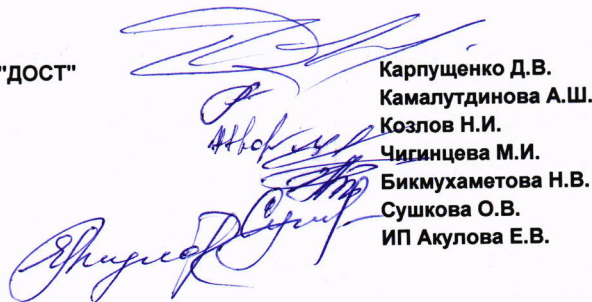 "ДОСТ"
Карпущенко Д.В.
Камалутдинова А.Ш.
Козлов Н.И.
Чигинцева М.И.
Бикмухаметова Н.В.
Сушкова О.В.
ИП Акулова Е.В.